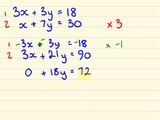 1 3x + 3y = 18
2 x + 7y = 30 × 3
1 -3x - 3y = -18 × -1
2 3x + 21y = 90
0 + 18y = 72